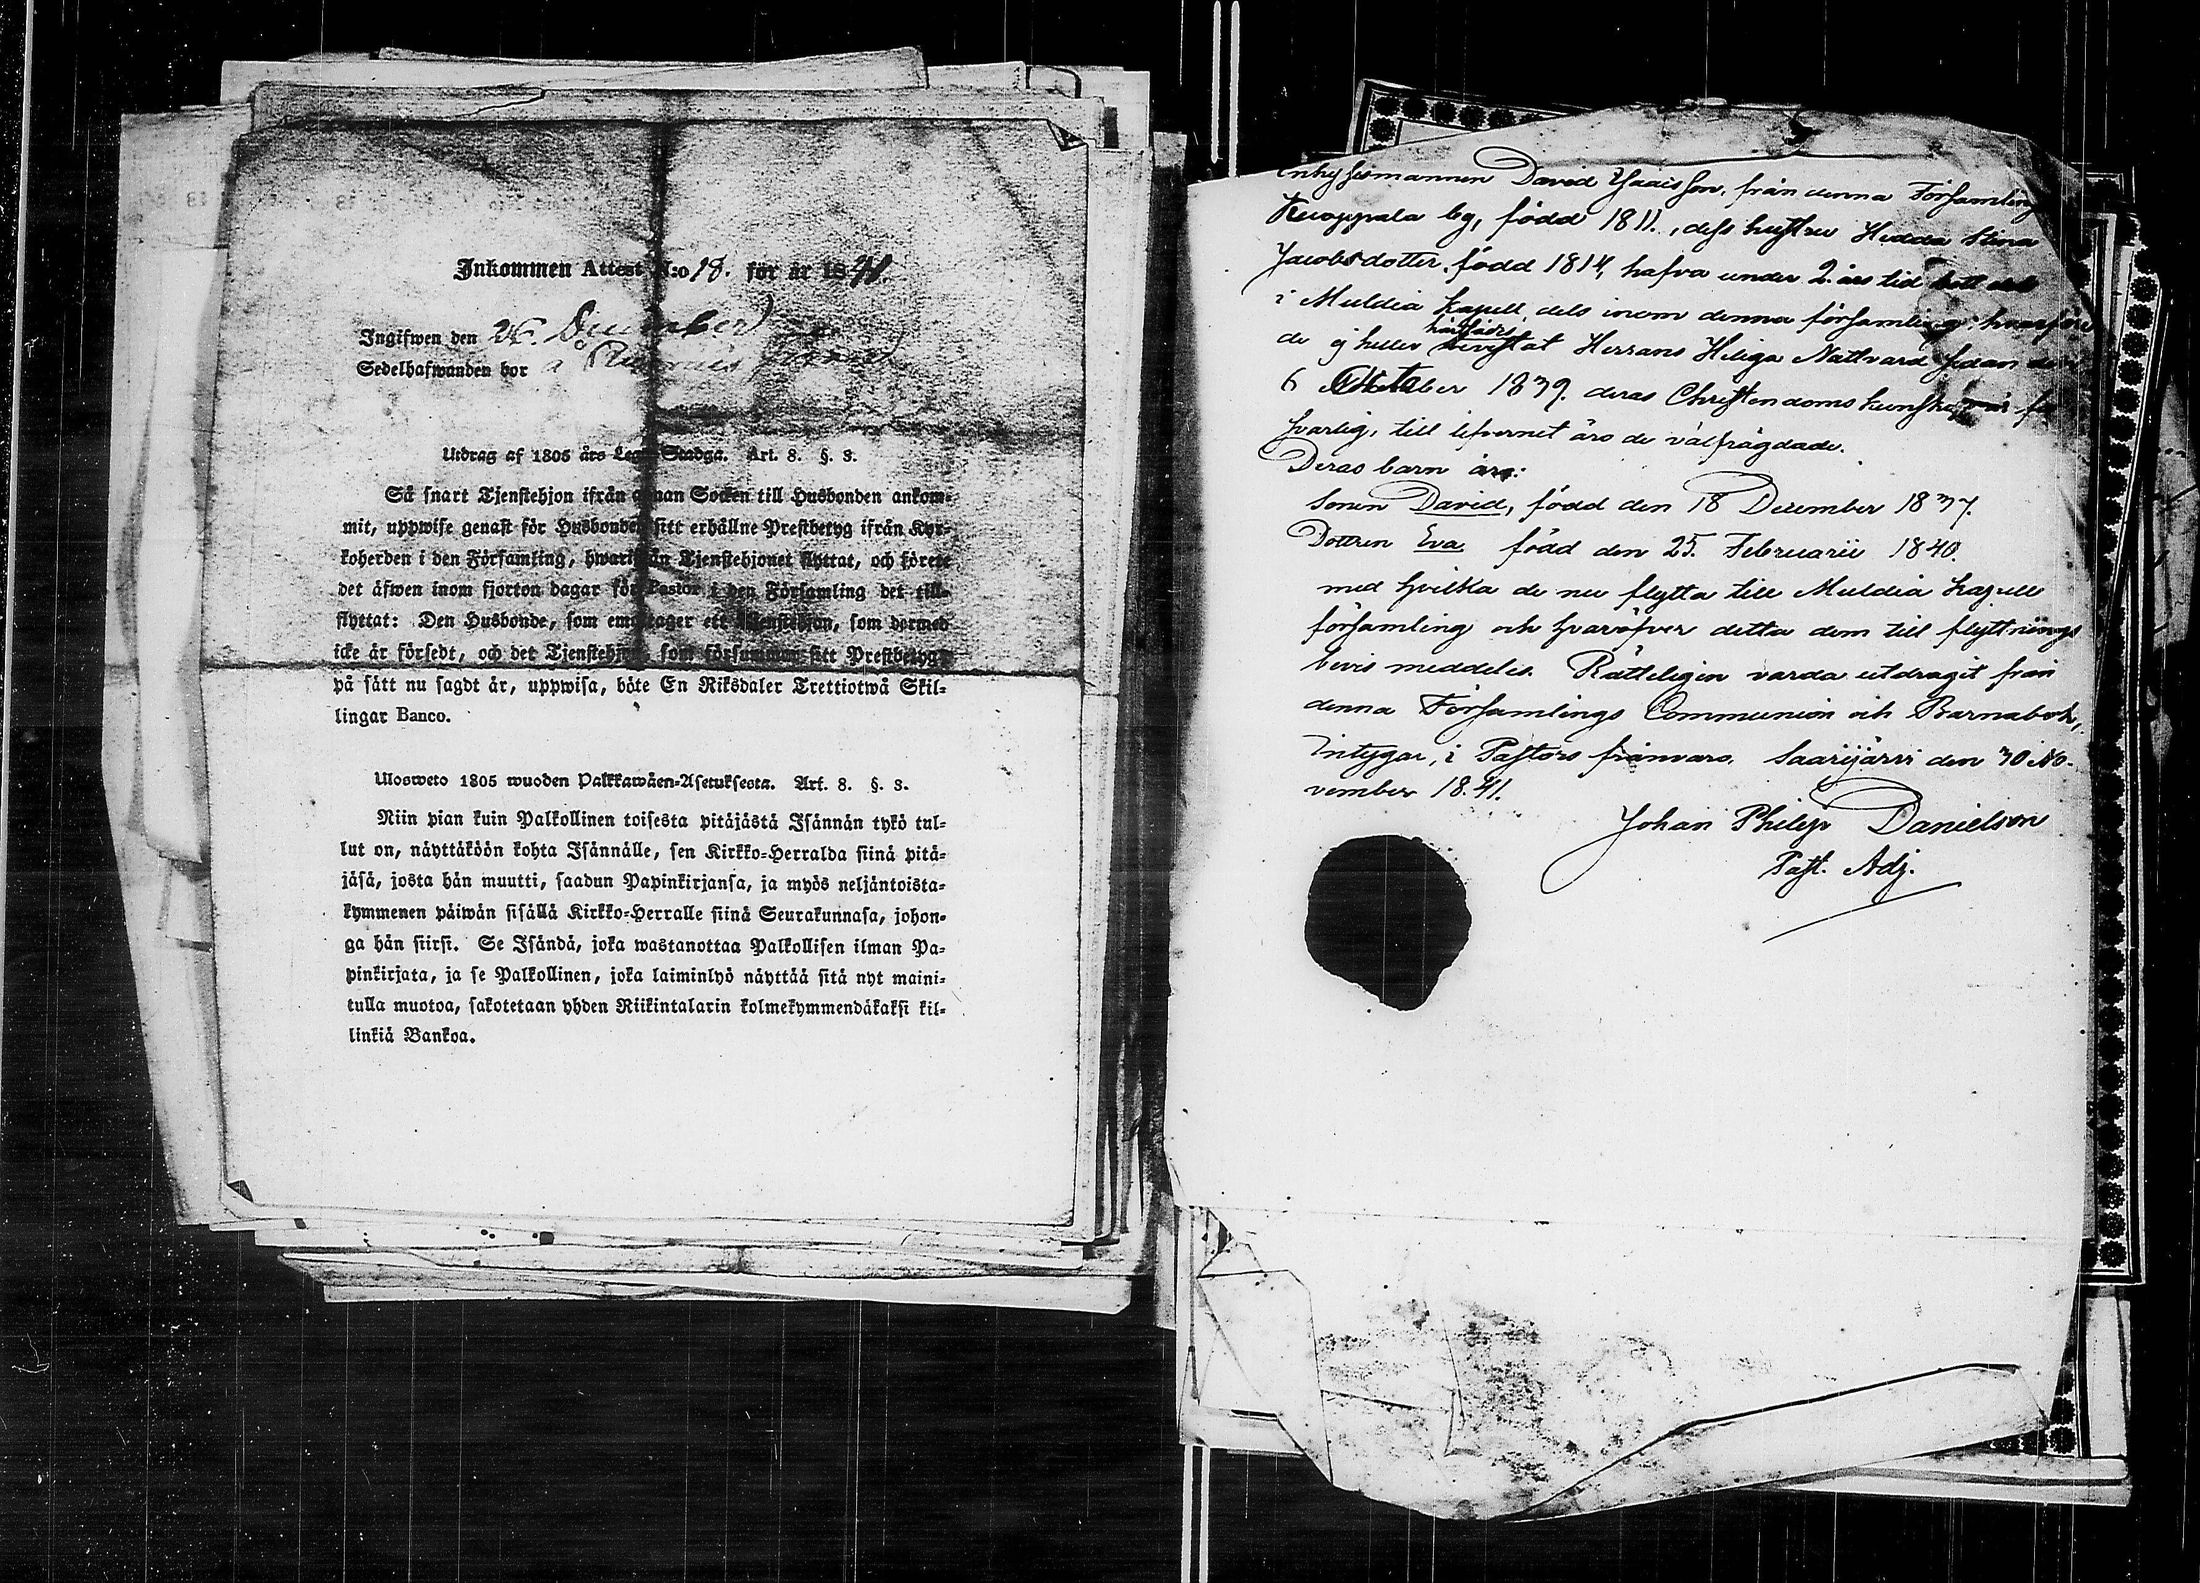 Inkommen Attest N:o 18. för år 1841.
Ingifwen den 26. December
Sedelhafwanden bor å
Utdrag af 1805 års Lego-Stadga. Art. 8. §. 3.
Så snart Tjenstehjon ifrån annan Socken till Husbonden ankom-
mit, uppwise genast för Husbonden sitt erhållne Prestbetyg ifrån Kyr-
koherden i den Församling, hwarifrån Tjenstehjonet flyttat, och förete
det äfwen inom fjorton dagar för Pastor i den Församling det till-
flyttat: Den Husbonde, som emottager ett Tjenstehjon, som dermed
icke är försedt, och det Tjenstehjon, som försummar sitt Prestbetyg,
på sätt nu sagdt är, uppwisa, böte En Riksdaler Trettiotwå Skil-
lingar Banco.
Ulosweto 1805 wuoden Palkkawäen-Asetuksesta. Art. 8. §. 3.
Niin pian kuin Palkollinen toisesta pitäjästä Isännän tykö tul-
lut on, näyttäköön kohta Isännälle, sen Kirkko-Herralda siinä pitä-
jäsä, josta hän muutti, saadun Papinkirjansa, ja myös neljäntoista-
kymmenen päiwän sisällä Kirkko-Herralle siinä Seurakunnasa, johon-
ga hän siirsi. Se Isändä, joka wastanottaa Palkollisen ilman Pa-
pinkirjata, ja se Palkollinen, joka laiminlyö näyttää sitä nyt maini-
tulla muotoa, sakotetaan yhden Riikintalarin kolmekymmendäkaksi kil-
linkiä Bankoa.
Inhysesmannen David Isaacsson, från denna Församling
Kuoppala by, född 1811., dess hustru Hedda Stina
Jacobsdotter, född 1814, hafva under 2. års tid
i Muldia kapell, dels inom denna församling; hvarföre
de ej heller härstädes bevistat Herrans Heliga Nattvard sedan den
6 Oktober 1839. deras Christendoms kunskap är för
svarlig, till lefvernet äro de välfrägdade.
Deras barn äro:
sonen David, född den 18 December 1837.
Dottren Eva född den 25. Februarii 1840.
med hvilka de nu flytta till Muldia kapells
församling och hvaröfver detta dem till flyttnings
bevis meddeles. Rätteligen varda utdragit från
denna Församlings Communion och Barnabok,
intygar, i Pastors frånvaro. Saarijärvi den 30 No-
vember 18.41.
Johan Philip Danielson
Past. Adj.